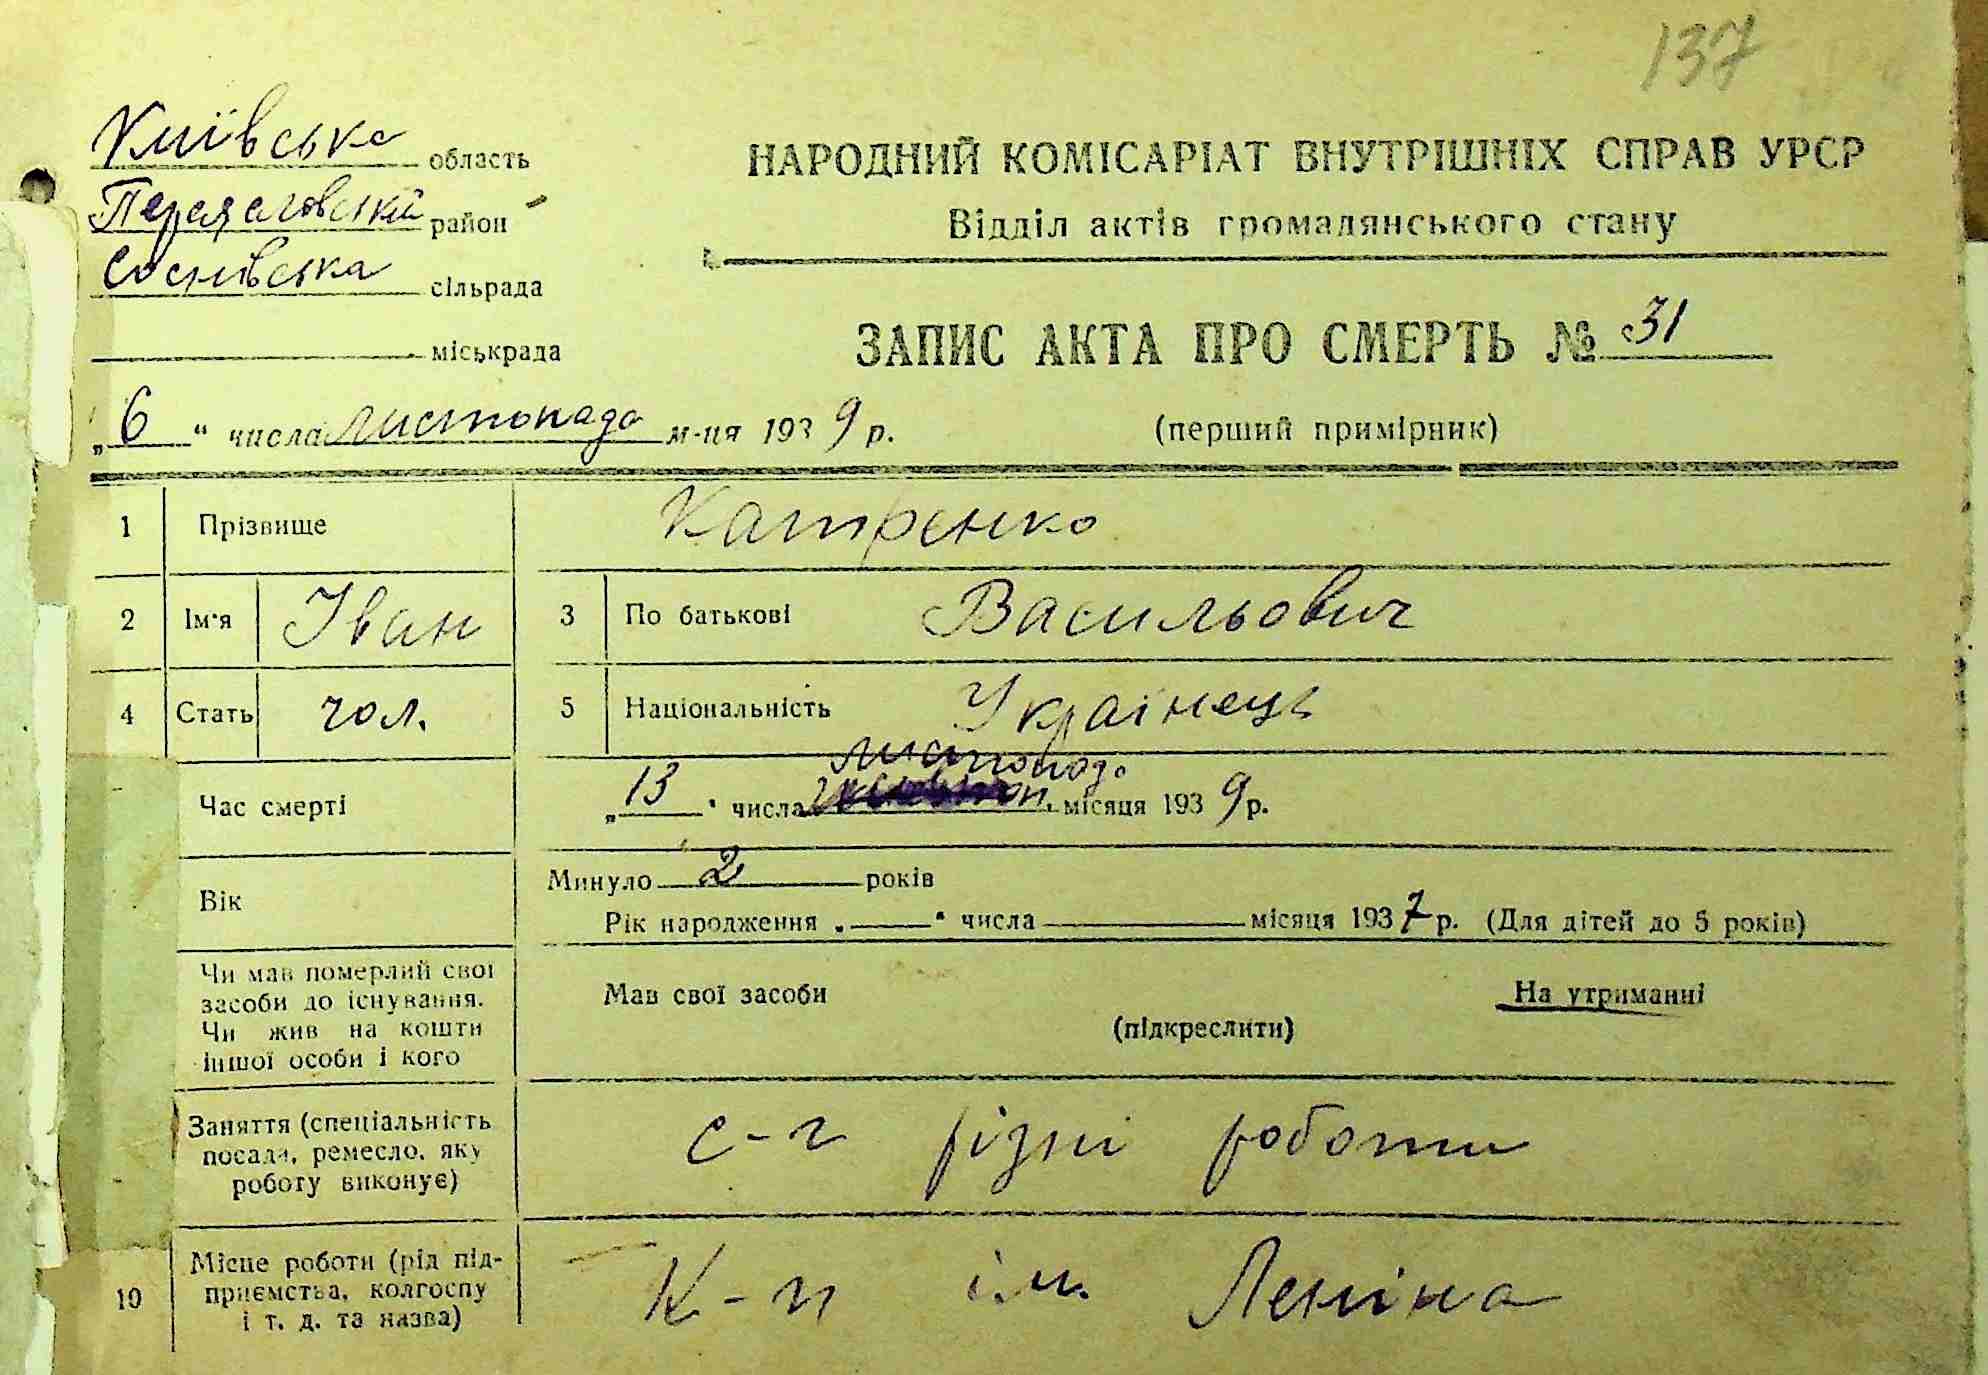 137
Київська область
Переяславський район
Соснівська сільрада
міськрада
НАРОДНИЙ КОМІСАРІАТ ВНУТРІШНІХ СПРАВ УРСР
Відділ актів громадянського стану
ЗАПИС АКТА ПРО СМЕРТЬ № 31
„6“ числа листопада м-ця 1939 р.
(перший примірник)
1 Прізвище Катренко
2 Ім'я Іван 3 По батькові Васильович
4 Стать чол. 5 Національність Українець
листопада
Час смерті „13“ числа місяця 1939 р.
Вік Минуло 2 років
Рік народження „ “ числа місяця 1937 р. (Для дітей до 5 років)
Чи мав померлий свої
засоби до існування.
Чи жив на кошти
іншої особи і кого
Мав свої засоби На утриманні
(підкреслити)
Заняття (спеціальність
посада, ремесло, яку
роботу виконує)
с-г різні роботи
10 Місце роботи (рід під-
приємства, колгоспу
і т. д. та назва)
К-п ім. Леніна